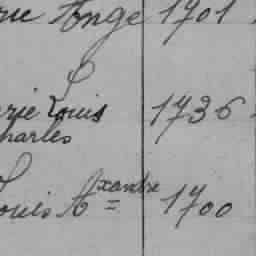 rie Ange 1701
L
arie Louis 1736
harles
Louis Axandre = 1700